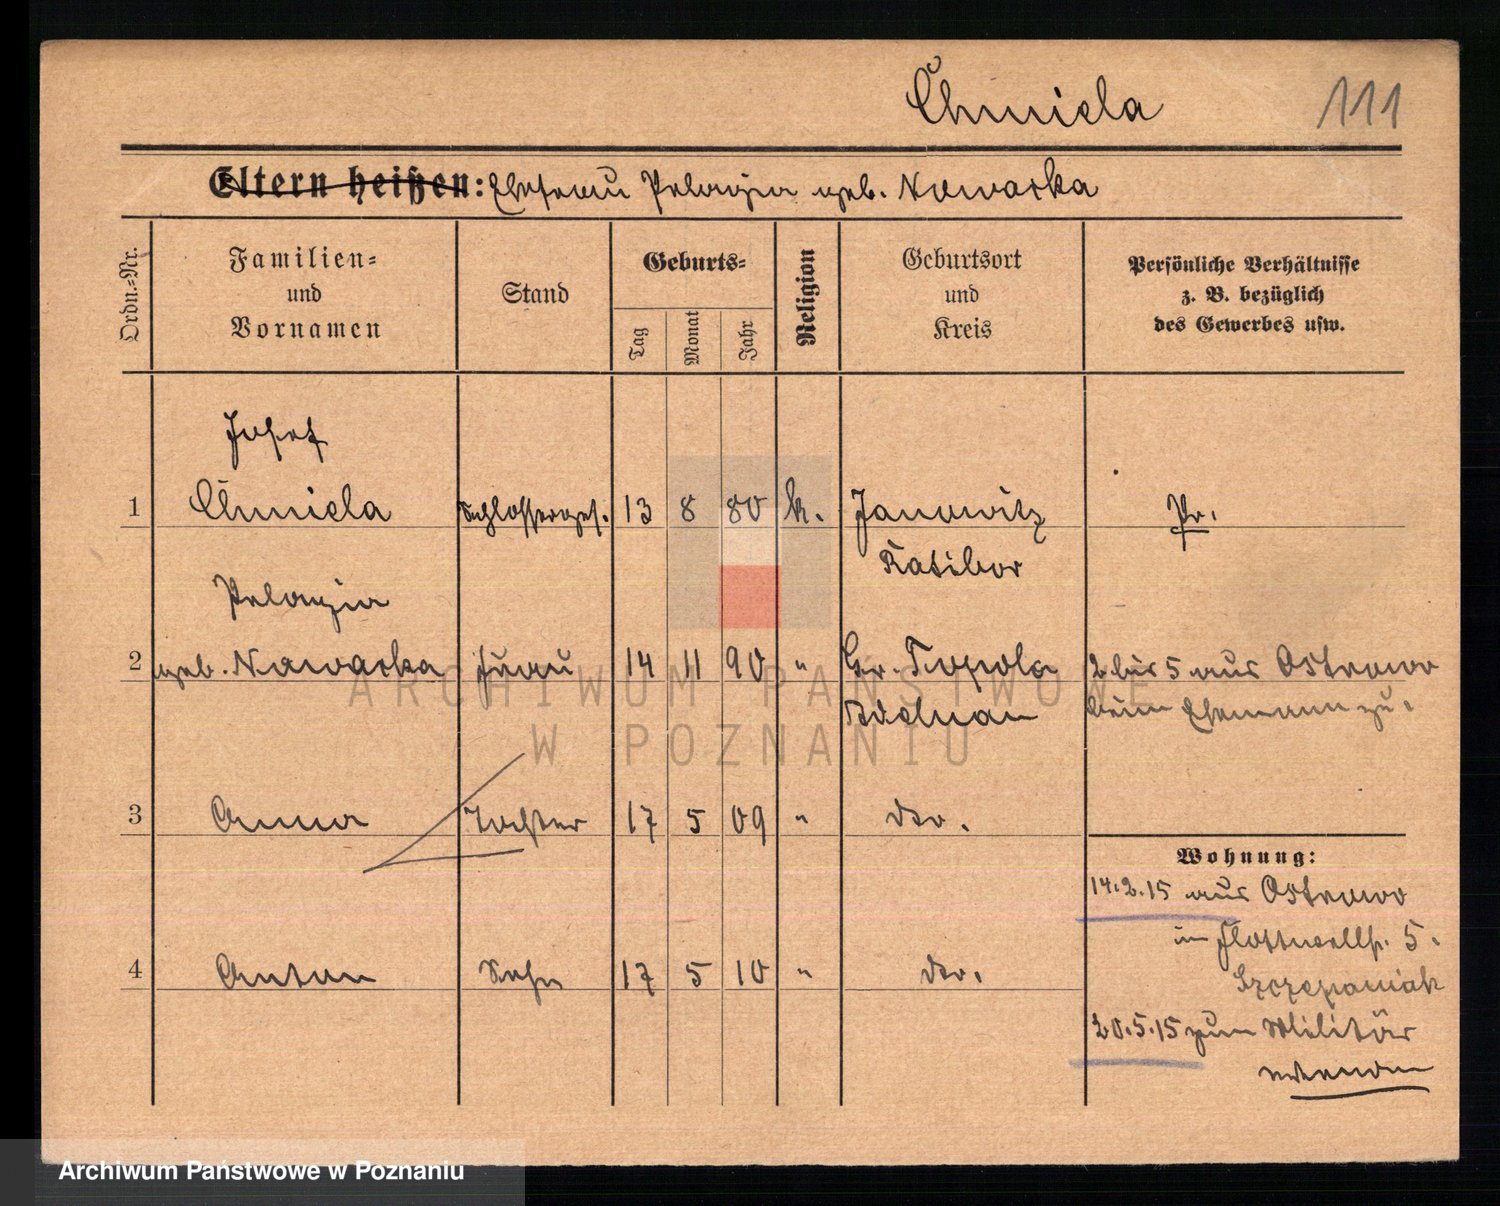 Chmiela 111
Eltern heißen: Ehefrau Pelagia geb. Nawarka
Ordn.=Nr.
Familien=
und
Vornamen
Stand
Geburts=
Tag
Monat
Jahr
Religion
Geburtsort
und
Kreis
Persönliche Verhältnisse
z. B. bezüglich
des Gewerbes usw.
Josef
1 Chmiela Schlosserges. 13 8 80 k. Janowitz Pr.
Ratibor
Pelagia
2 geb. Nawarka Frau 14 11 90 " Gr. Topola 2 bis 5 aus Ostrowo
Adelnau beim Ehemann zu.
3 Anna Tochter 17 5 09 " do.
4 Anton Sohn 17 5 10 " do.
Wohnung:
14.2.15 aus Ostrowo
in Flottwellstr. 5.
Szczepaniak
20.5.15 zum Militär
ARCHIWUM PAŃSTWOWE
W POZNANIU
Archiwum Państwowe w Poznaniu